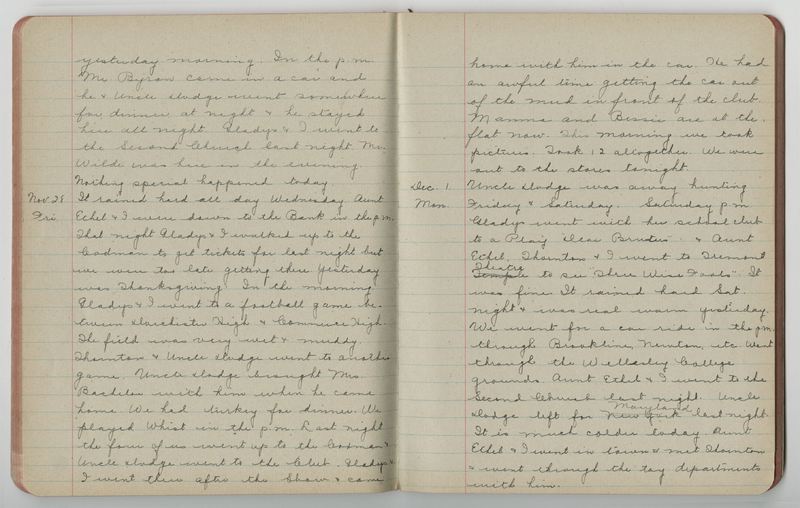 yesterday morning. In the p.m.
Mr. Byron came in a car and
he & Uncle Dodge went somewhere
for dinner at night & he stayed
here all night. Gladys & I went to
the Second Church last night. Mr.
Wilde was here in the evening.
Nothing special happened today.
Nov. 28 It rained hard all day Wednesday Aunt
Fri. Ethel & I were down to the Bank in the p.m.
That night Gladys & I walked up to the
Codman to get tickets for last night but
we were too late getting there Yesterday
was Thanksgiving. In the morning
Gladys & I went to a football game be-
tween Dorchester High & Commerce High.
The field was very wet & muddy.
Thornton & Uncle Dodge went to another
game. Uncle Dodge brought Mrs.
Bachelor with him when he came
home. We had turkey for dinner. We
played Whist in the p.m. Last night
the four of us went up to the Codman &
Uncle Dodge went to the Club. Gladys &
I went there after the Show & came
home with him in the car. He had
an awful time getting the car out
of the mud in front of the club.
Mamma and Bessie are at the
flat now. This morning we took
pictures. Took 12 altogether. We were
out to the stores tonight.
Dec. 1. Uncle Dodge was away hunting
Mon. Friday & Saturday. Saturday p.m
Gladys went with her school club
to a Play "Dear Brutus" & Aunt
Ethel, Thornton & I went to Tremont
Theatre
Temple to see "Three Wise Fools". It
was fine It rained hard Sat.
night & was real warm yesterday.
We went for a car ride in the p.m.
through Brookline, Newton, etc. Went
through the Wellesley College
grounds. Aunt Ethel & I went to the
Second Church last night. Uncle
Maryland
Dodge left for New York last night.
It is much colder today. Aunt
Ethel & I went in town & met Thornton
& went through the toy departments
with him.